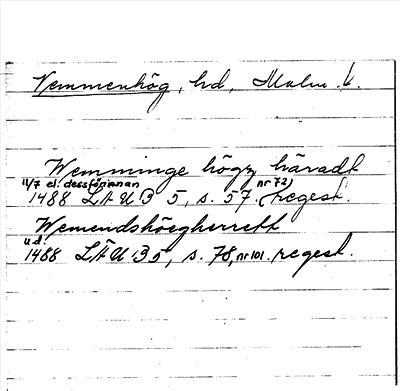 Vemmenhög, hd, Malm. l.
Wemminge högz häradt
11/7 el. dessförinnan nr 72)
1488 LÄU B 5, s. 57. (regest.
Wemendshöegherrett
u.d.
1488 LÄU B 5, s. 78, nr 101. regest.